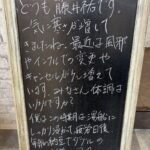 どうも 藤井祐です。
一気に寒さが増して
きましたね。最近は風邪
やインフルでの変更や
キャンセルがかなり増えて
います。みなさん体調は
いかがですか？
僕はこの時期は湯船に
しっかり浸かって、疲労回復